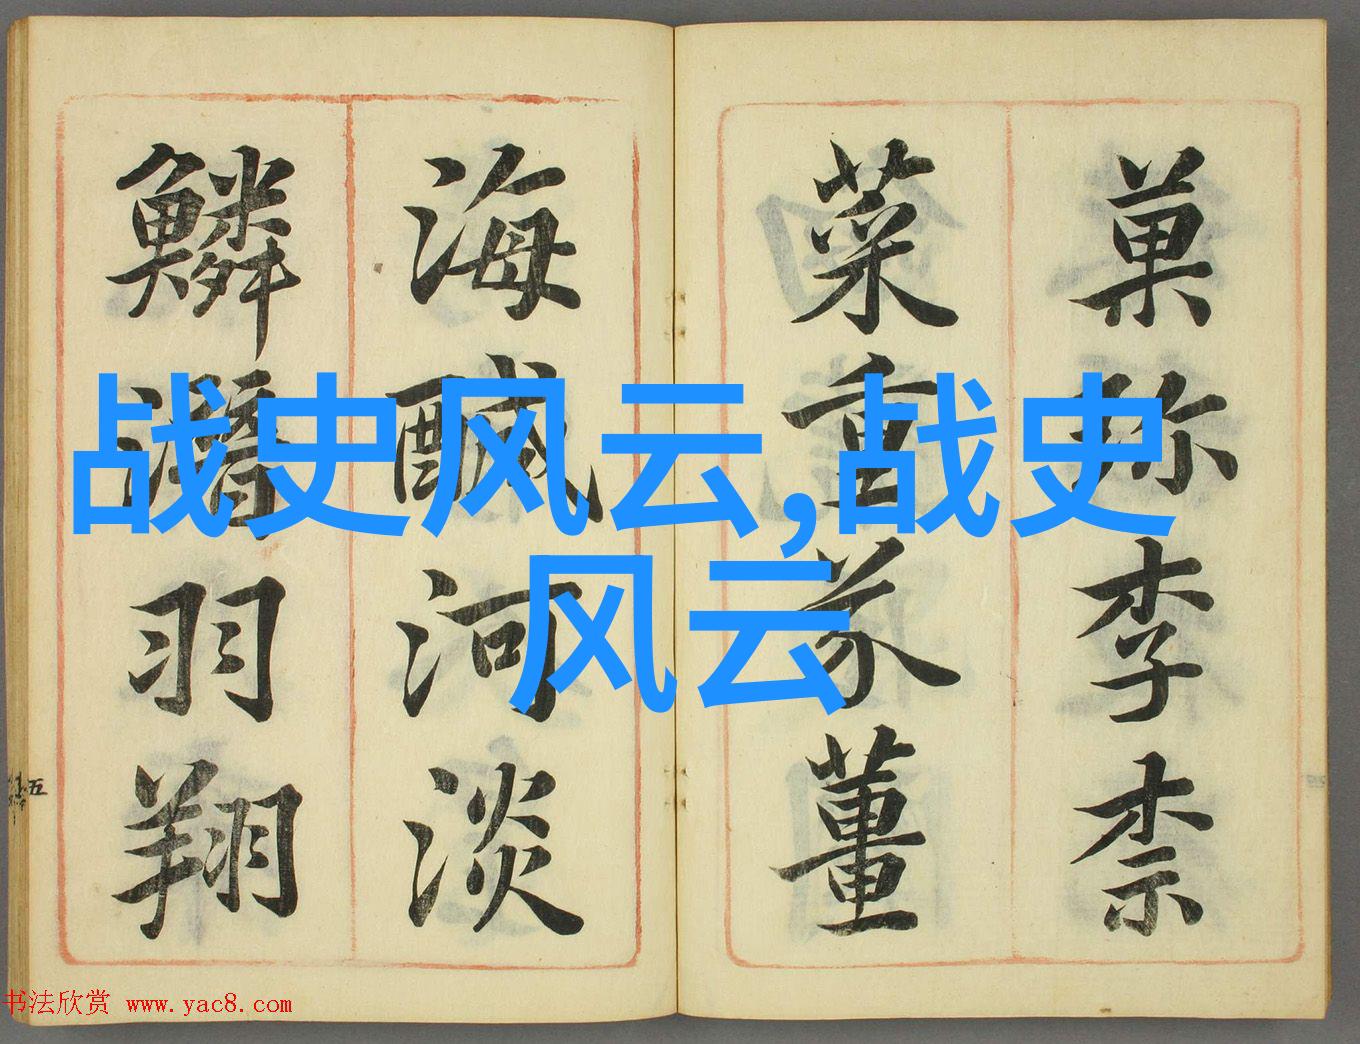 菓珎李柰
菜重芥薑
海醎河淡
鱗潛羽翔
战史风云,战史
风云
五
书法欣赏 www.yac8.com